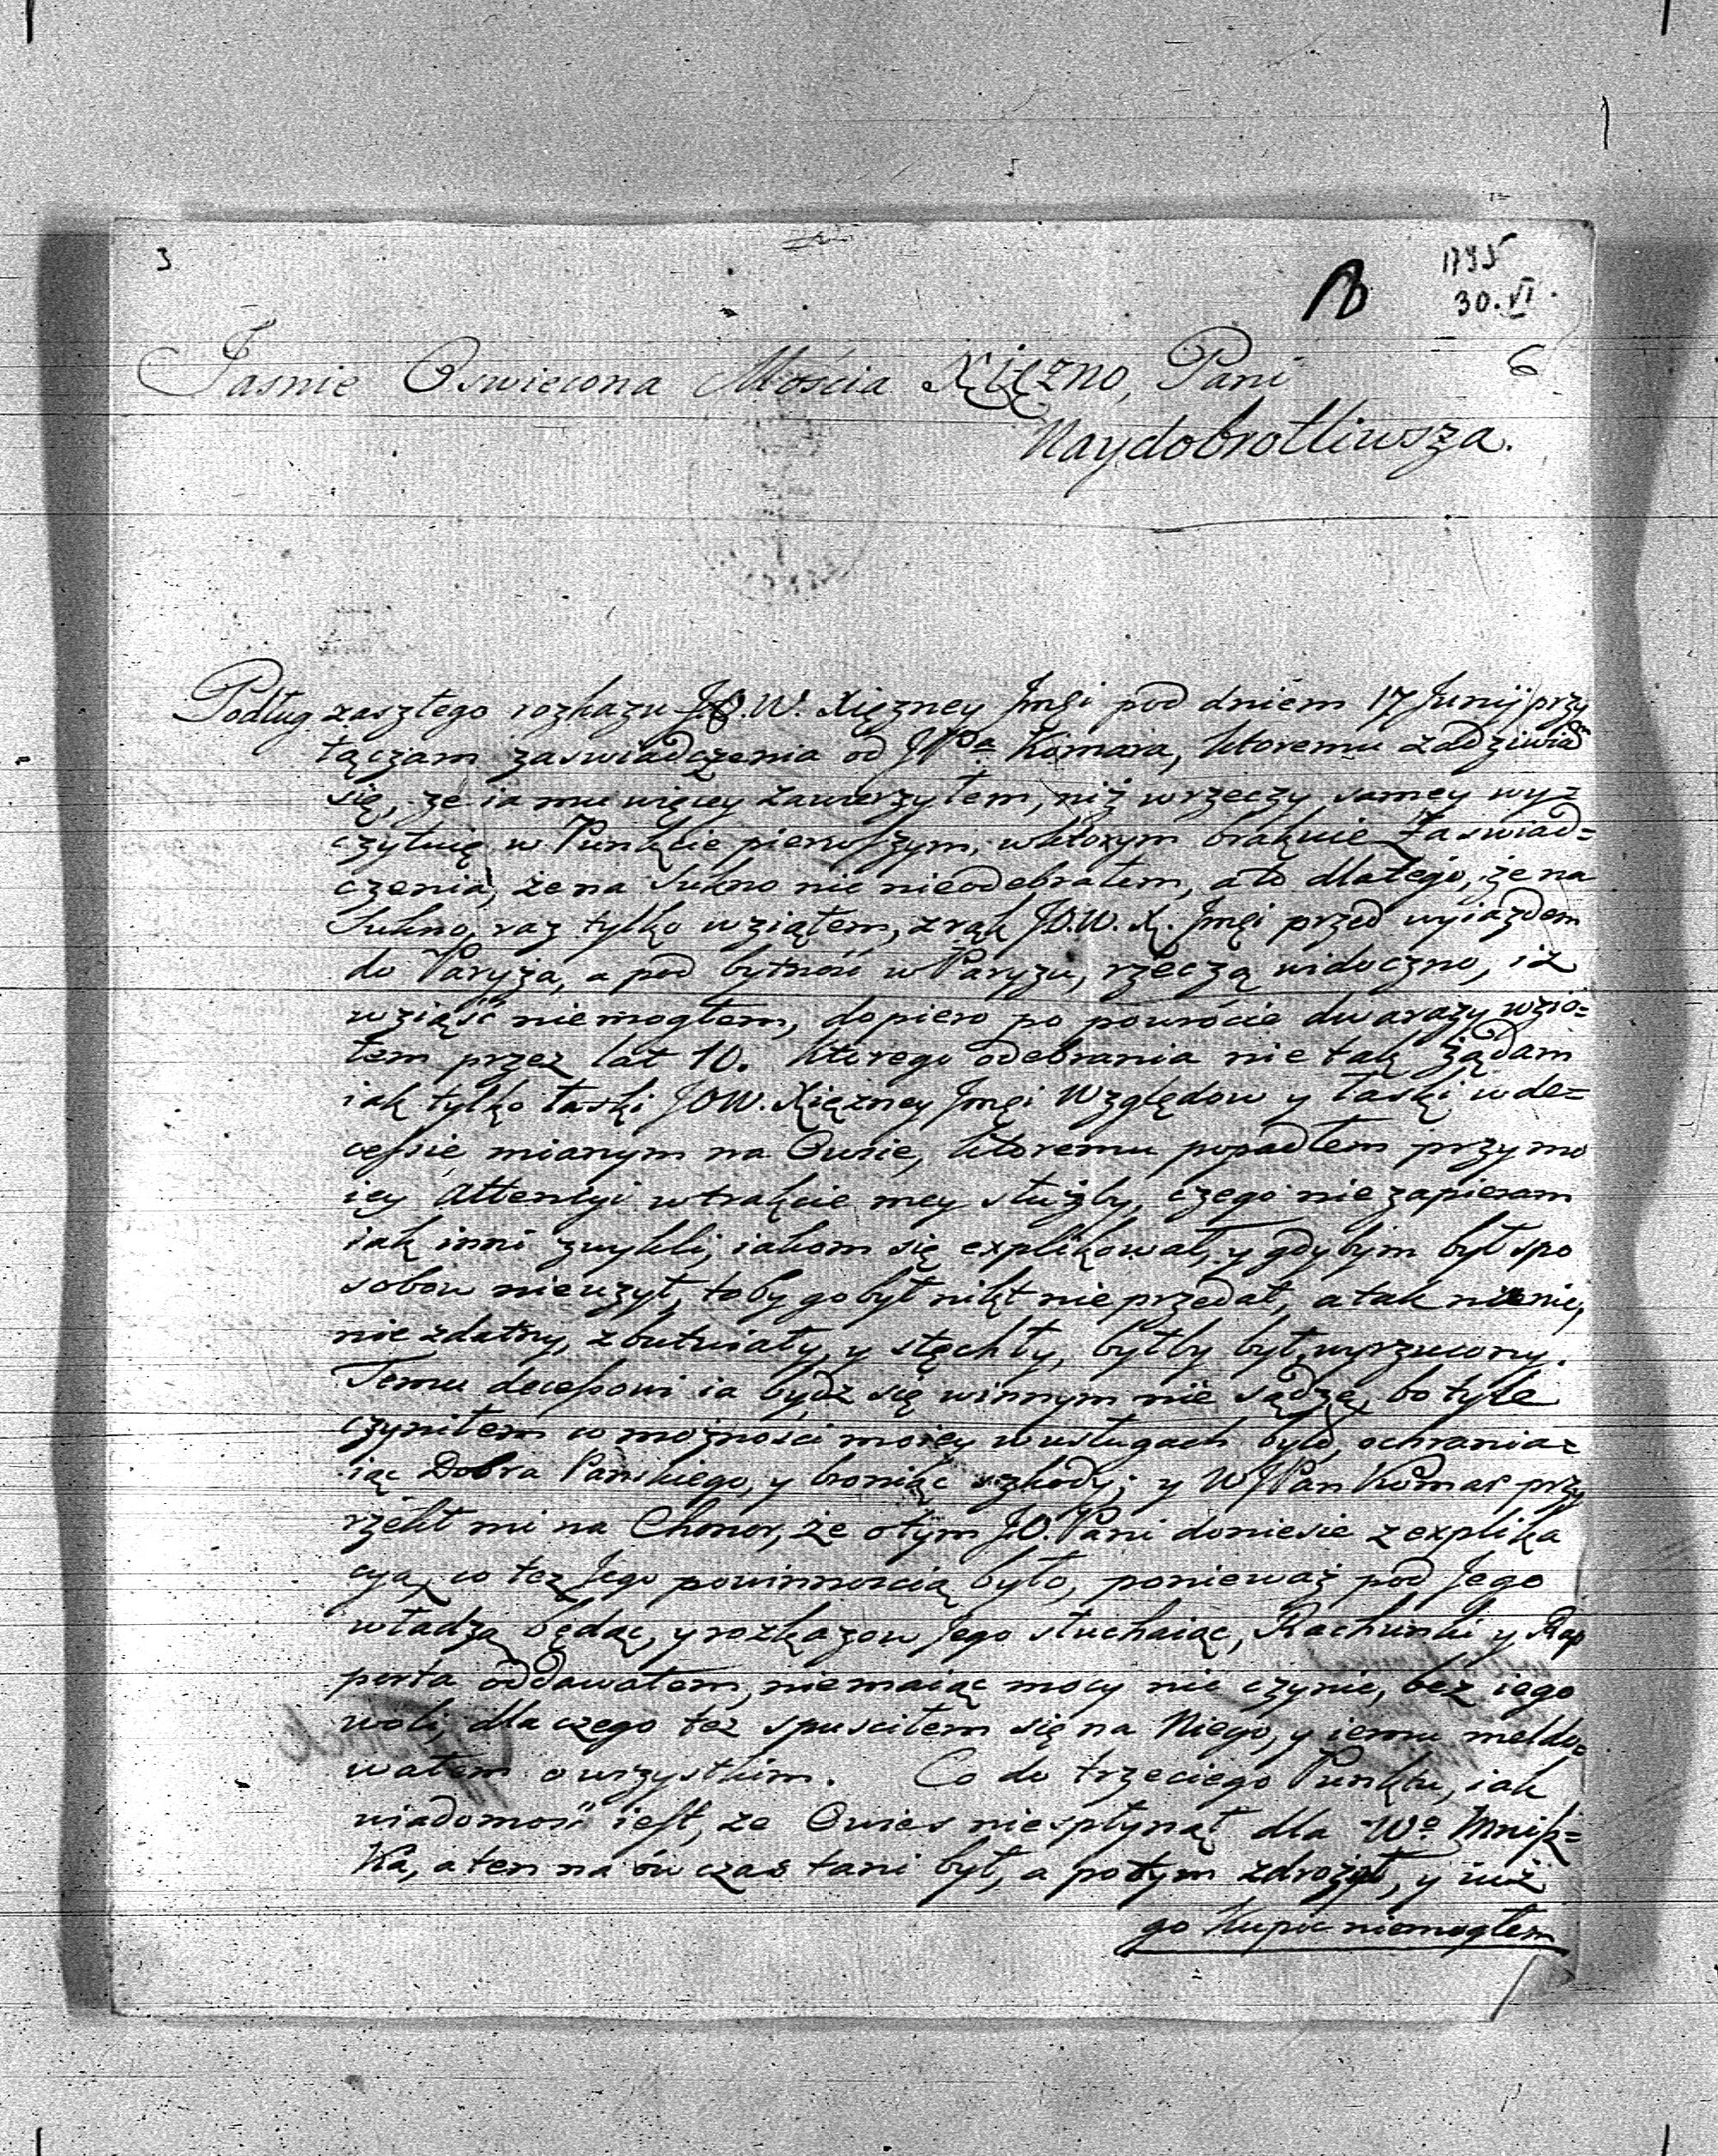 3
1795
30. VI.
6
Jasnie Oswiecona Mościa Xiężno, Pani
Naydobrotliwsza.
Podług zaszłego rozkazu J.O.W. Xiężney Jmći pod dniem 17 Junij przy
łączam zaswiadczenia od JPa Komara, ktoremu zadziwiam
się, że ia mu więcey zawierzyłem, niż w rzeczy samey wy=
czytuię w Punkcie pierwszym, w ktorym brakuie Zaswiad=
czenia, że na Sukno nic nieodebrałem, a to dlatego, że na
Sukno, raz tylko wziąłem, z rąk J.O.W. X. Jmći przed wyiazdem
do Paryża, a pod bytność w Paryżu, rzeczą widoczno, iż
wziąść niemogłem, dopiero po powrócie dwa razy wzio=
łem przez lat 10. ktorego odebrania nie tak żądam
iak tylko łaski JOW. Xiężney Jmći Względow y łaski w de=
cessie mianym na Owsie, ktoremu popadłem przy mo
iey Attencyi w trakcie mey służby, czego nie zapieram
iak inni zwykli, iakom się explikował, y gdybym był spo
sobow nieużył, toby go był nikt nie przedał, a tak
nie zdatny, zbutwiały, y stęchły, byłby był wyrzucony.
Temu decessowi ia bydz się winnym nie sądzę, bo tyle
czyniłem co możności moiey w usługach było, ochrania=
iąc Dobra Pańskiego, y broniąc szkody; y WJPan Komar przy
rzekł mi na Chonor, że o tym J.O. Pani doniesie z explika
cyą, co też Jego powinnoscią było, ponieważ pod Jego
władzą będąc, y rozkazow Jego słuchaiąc, Rachunki y Rap
porta oddawałem, niemaiąc mocy nic czynic, bez iego
woli, dla czego też spuscilem się na Niego, y iemu meldo=
wałem o wszystkim. Co do trzeciego Punktu, iak
wiadomość iest, że Owies niespłynął dla Wo Mnisz=
Ka, a ten na ów czas tani był, a potym zdrożał, y iuż
go Kupic niemogłem